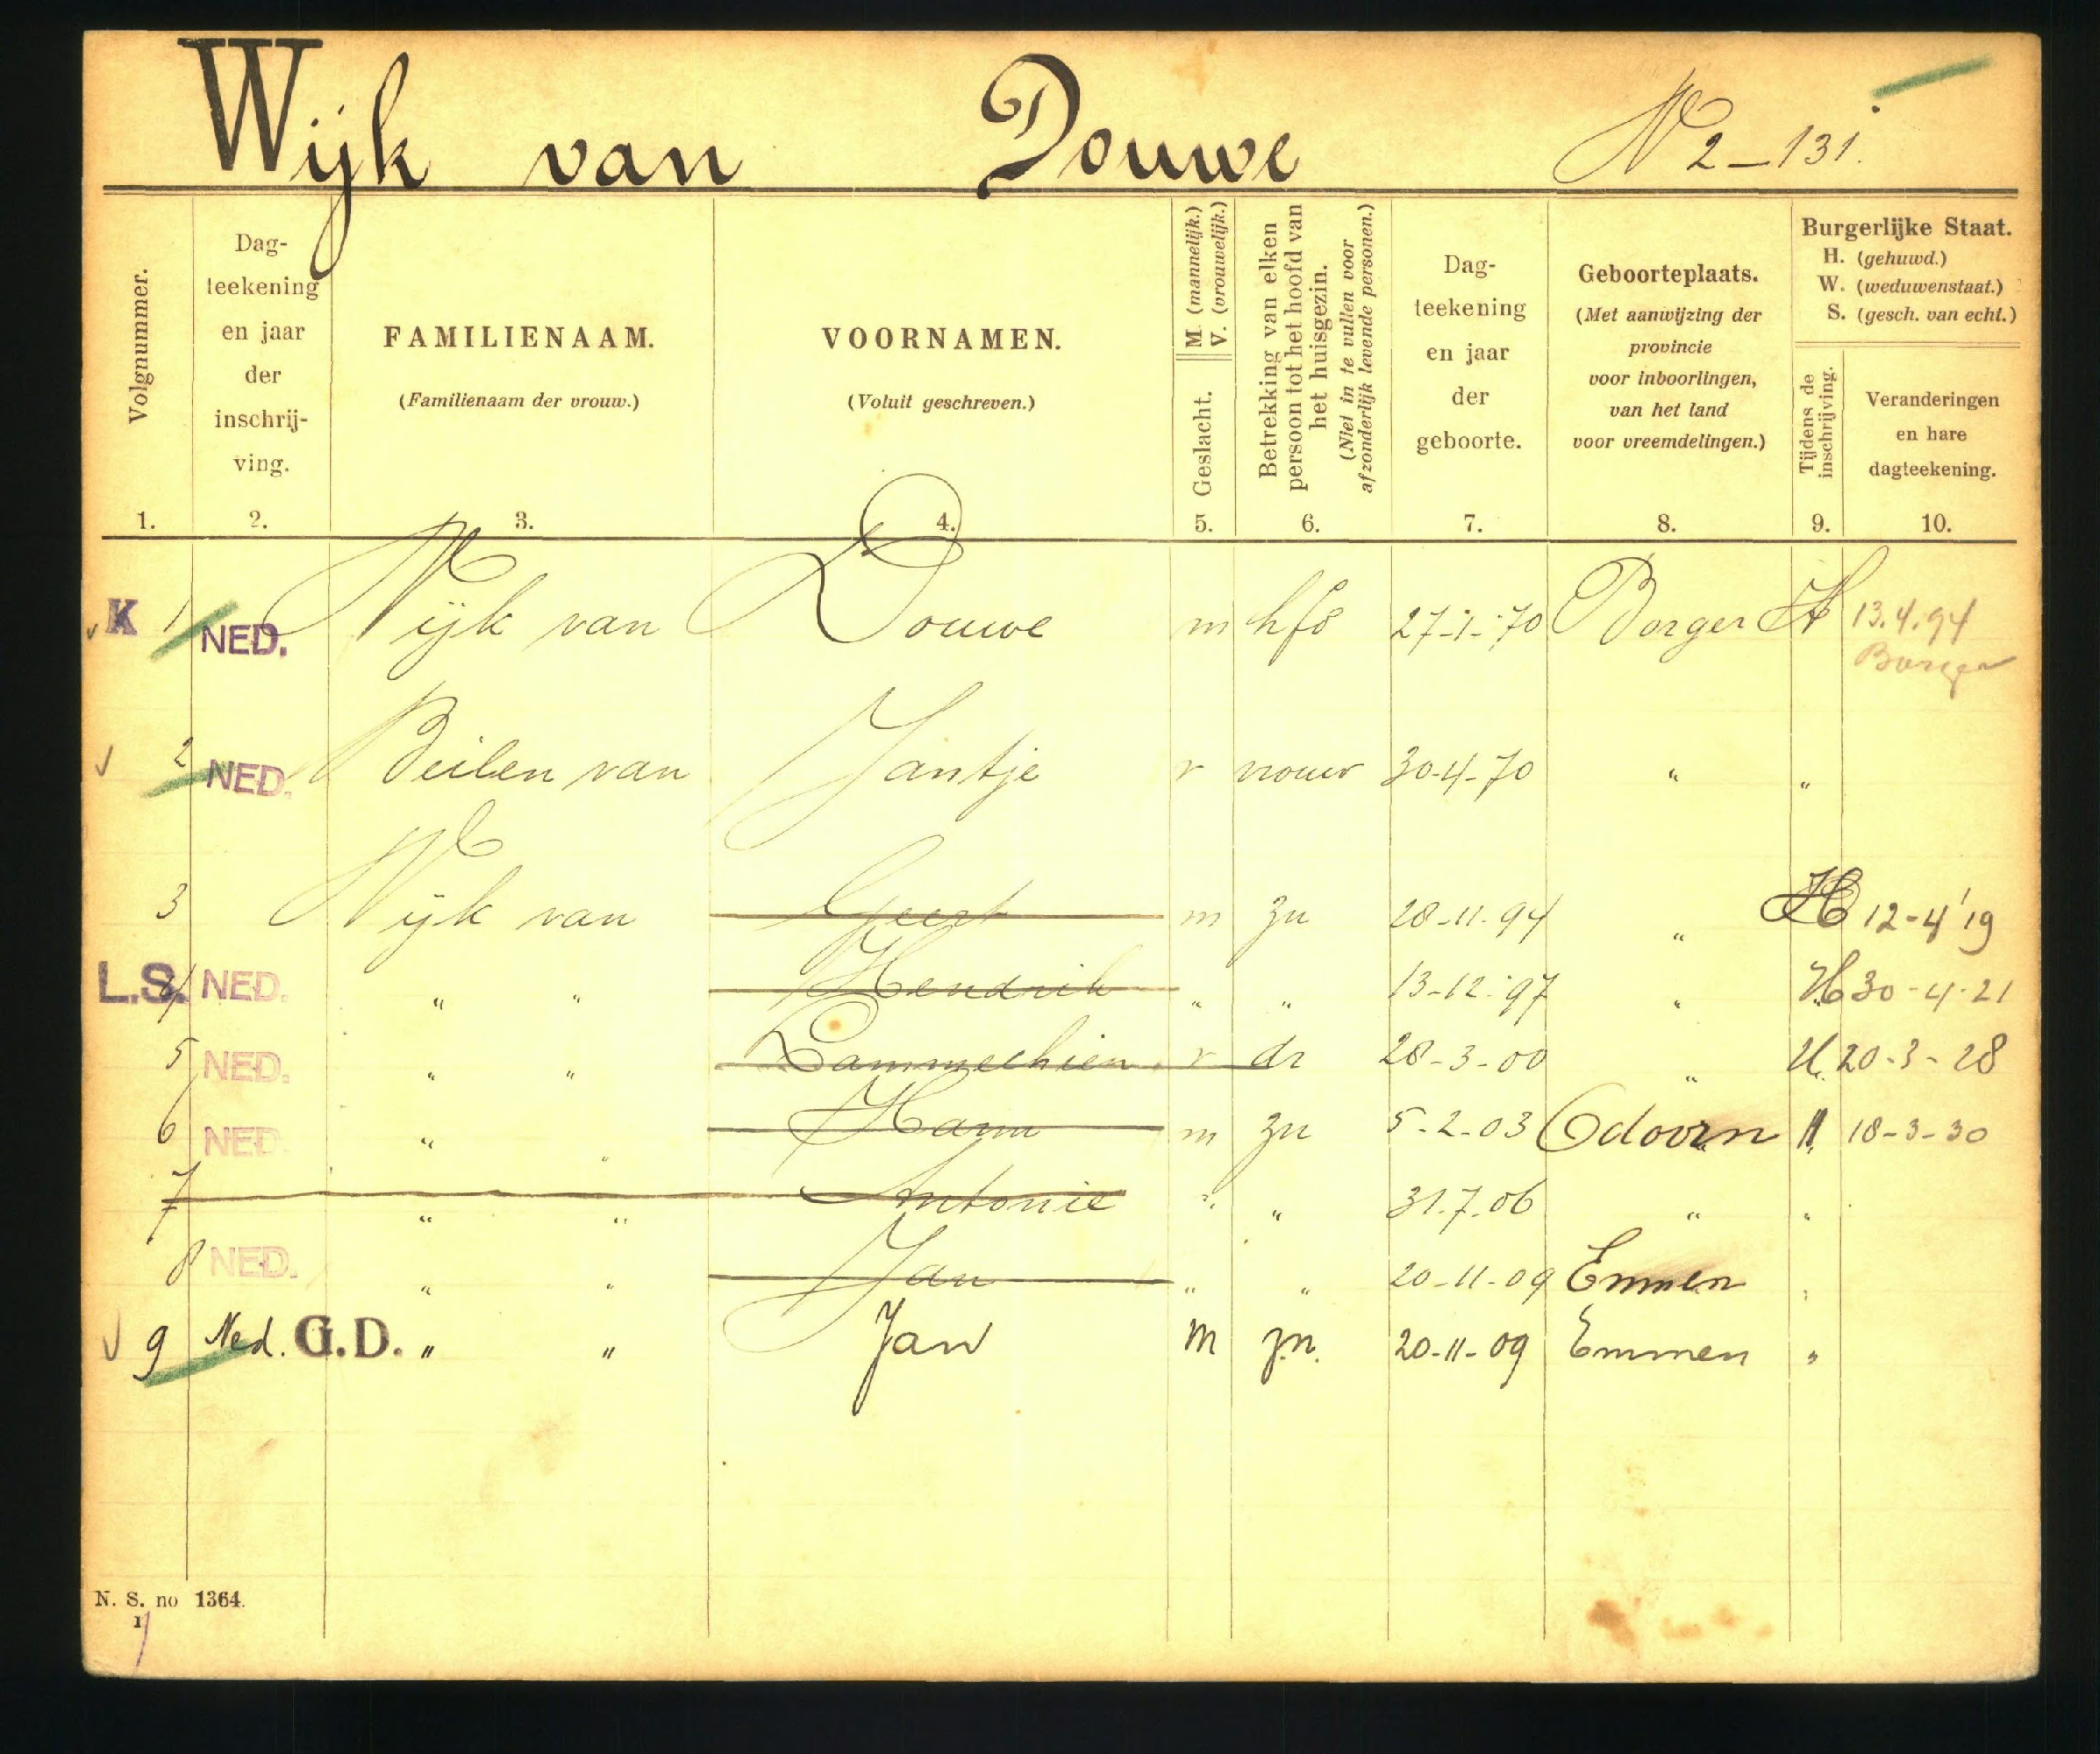 Wijk van Douwe W 2-131.
Volgnummer.
Dag-
teekening
en jaar
der
inschrij-
ving.
FAMILIENAAM.
(Familienaam der vrouw.)
VOORNAMEN.
(Voluit geschreven.)
M. (mannelijk.)
V. (vrouwelijk.)
Geslacht.
Betrekking van elken
persoon tot het hoofd van
het huisgezin.
(Niet in te vullen voor
afzonderlijk levende personen.)
Dag-
teekening
en jaar
der
geboorte.
Geboorteplaats.
(Met aanwijzing der
provincie
voor inboorlingen,
van het land
voor vreemdelingen.)
Burgerlijke Staat.
H. (gehuwd.)
W. (weduwenstaat.)
S. (gesch. van echt.)
Tijdens de
inschrijving.
Veranderingen
en hare
dagteekening.
1. 2. 3. 4. 5. 6. 7. 8. 9. 10.
K 1 NED. Wijk van Douwe m hfd 27-1-70 Borger H 13.4.94
Borger
2 NED. Beilen van Jantje v vrouw 30-4-70 " "
3 Wijk van Geert m zn 28-11-94 " H 12-4'19
L.S. 4 NED. " " Hendrik " " 13-12-97 " H 30-4-21
5 NED. " " Lammechien v dr 28-3-00 " H. 20-3-28
6 NED. " " Harm m zn 5-2-03 Odoorn H 18-3-30
7 " " Antonie " " 31.7.06 " "
8 NED. " " Jan " " 20-11-09 Emmen "
9 Ned. G.D. " " Jan m zn. 20-11-09 Emmen "
N. S. no 1364.
1